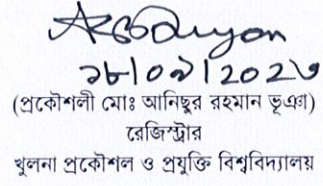 ১৮/০৯/২০২৩
(প্রকৌশলী মোঃ আনিছুর রহমান ভূঞা)
রেজিস্ট্রার
খুলনা প্রকৌশল ও প্রযুক্তি বিশ্ববিদ্যালয়